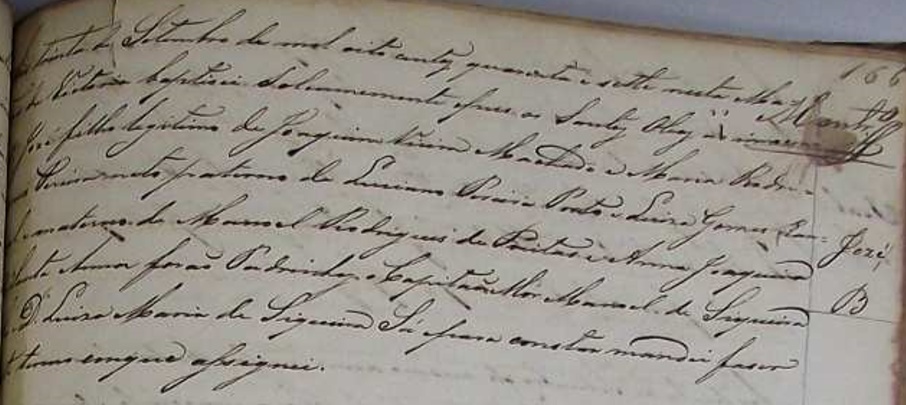 166
trinta de Setembro de mil oito centos quarenta e sette nesta Ma-
da Victoria baptisei Solemnemente e pus os Santos Oleos
José filho legitimo de Joaquim Vieira Machado e Maria Rodri-
Pereira neto paterno de Luciano Pereira Porto e Luiza Gomes
e materno de Manoel Rodrigues de Freitas e Anna Joaquina
Santa Anna forão Padrinhos o Capitão Mór Manoel de Siqueira
D. Luiza Maria de Siqueira Sá e para constar mandei faser
termo em que assignei.
José,
B